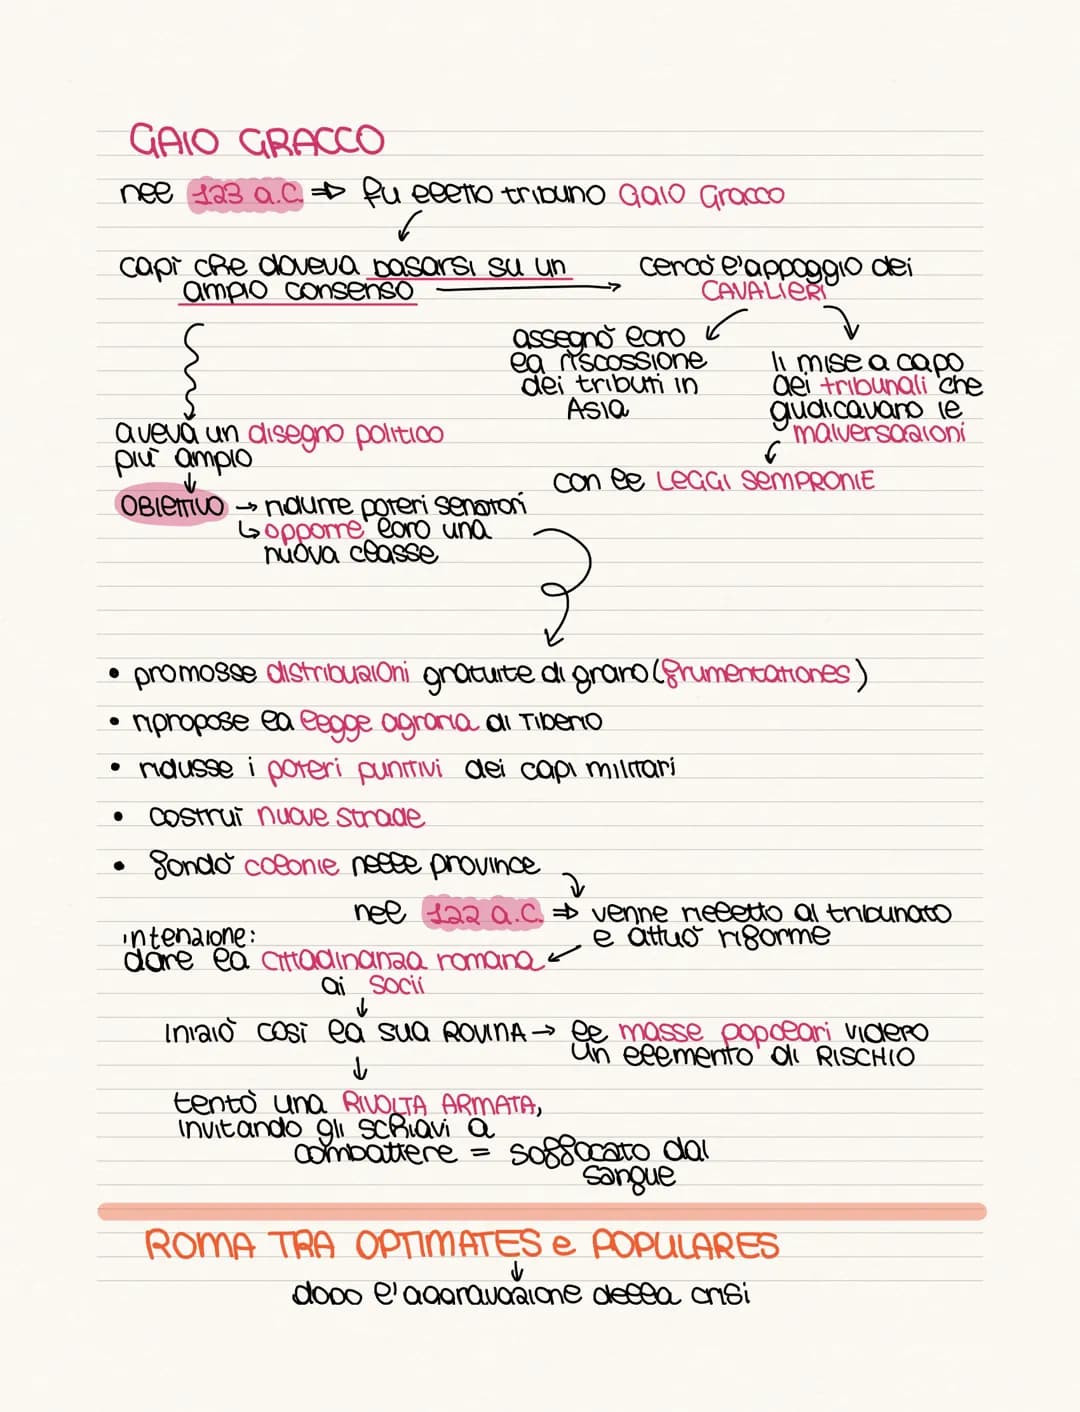 GAIO GRACCO
nel 123 a.C. ⇒ fu eletto tribuno Gaio Gracco
capì che doveva basarsi su un
ampio consenso
cercò l'appoggio dei
CAVALIERI
assegnò loro
la riscossione
dei tributi in
Asia
li mise a capo
dei tribunali che
giudicavano le
malversazioni
con le LEGGI SEMPRONIE
aveva un disegno politico
più ampio
OBIETTIVO → ridurre poteri senatori
↳ opporre loro una
nuova classe
• promosse distribuzioni gratuite di grano (frumentationes)
• ripropose la legge agraria di Tiberio
• ridusse i poteri punitivi dei capi militari
• costruì nuove strade
• fondò colonie nelle province
nel 122 a.C. ⇒ venne rieletto al tribunato
e attuò riforme
intenzione:
dare la cittadinanza romana
ai socii
iniziò così la sua ROVINA → le masse popolari videro
un elemento di RISCHIO
tentò una RIVOLTA ARMATA,
invitando gli schiavi a
combattere = soffocato dal
sangue
ROMA TRA OPTIMATES e POPULARES
dopo l'aggravazione della crisi